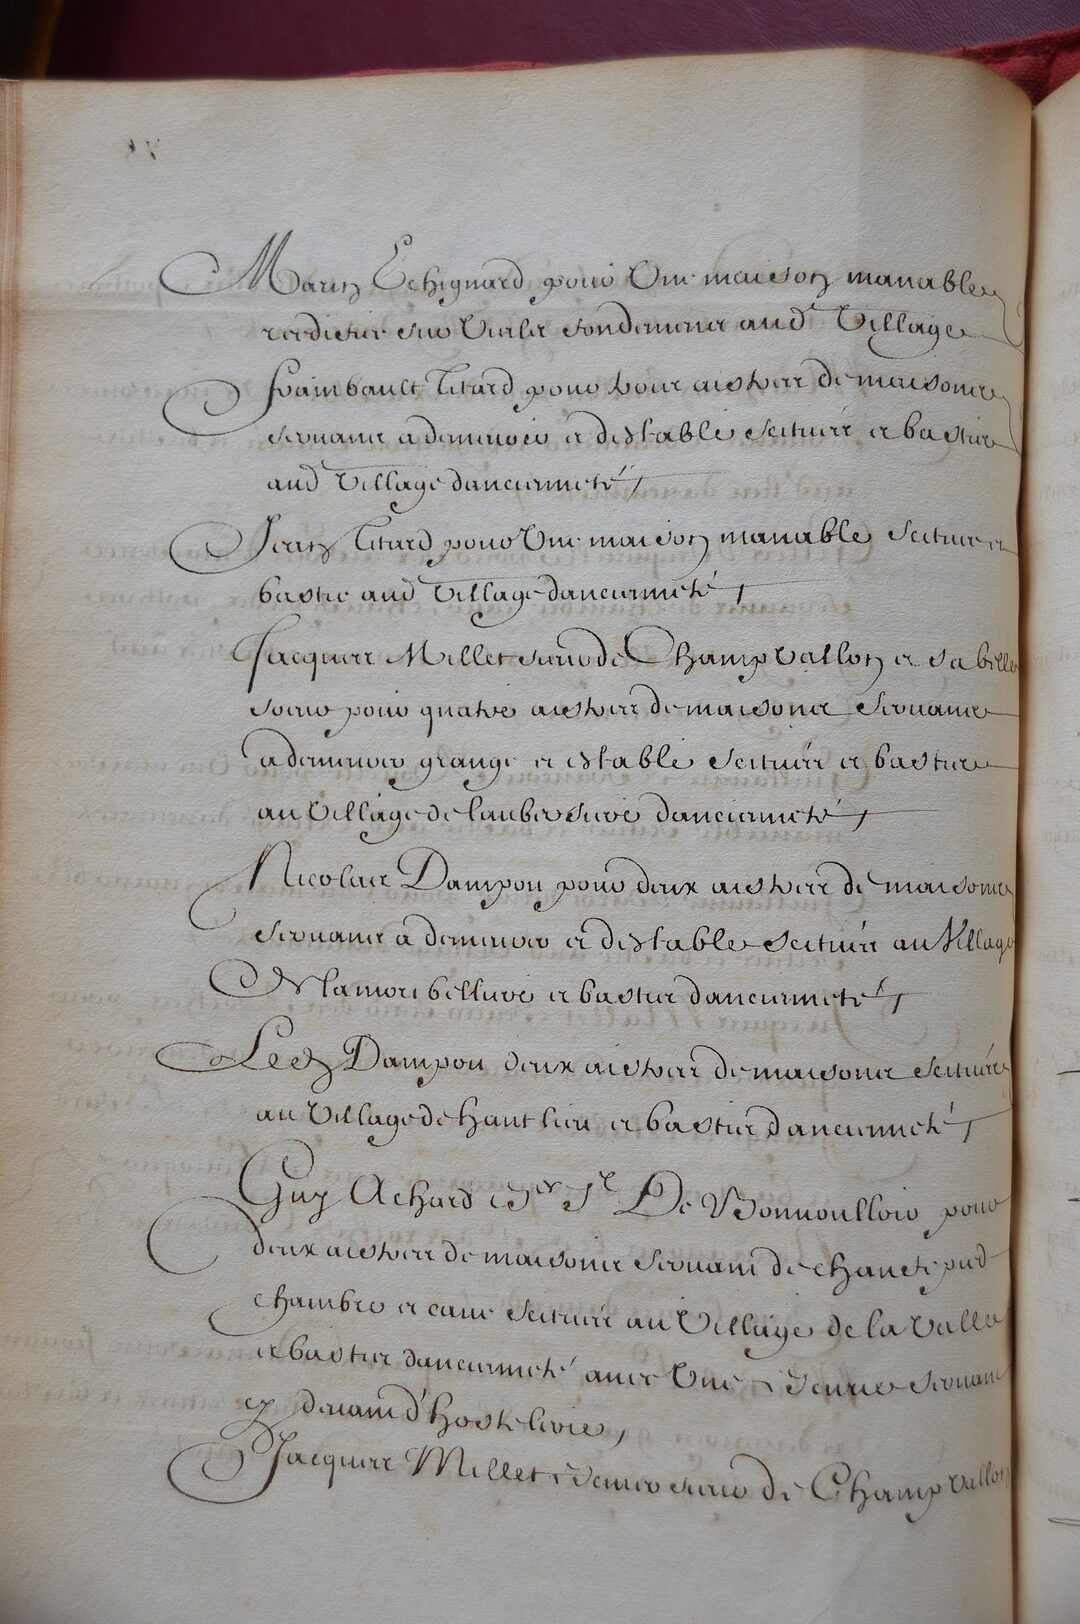 Marin Echignard pour Une maison manable
reedifiee sur Vieilx fondemens aud^t Village
Frainbault Titard pour trois aistres de maisons
servans a demeurer et d'estable scituez et bastis
aud Village d'ancienneté
Jean Titard pour Une maison manable scituee et
bastie aud Village d'ancienneté
Jacques Millet sieur de Champvallon et sa belle
soeur pour quatre aistres de maisons servans
a demeurer grange et estable scituez et bastis
au Village de lauberdiere d'ancienneté
Nicolas Dampou pour deux aistres de maisons
servans a demeurer et d'estable scituez au Village
de la et bastis d'ancienneté
Leon Dampou deux aistres de maisons scituez
au Village de hautlieu et bastis d'ancienneté
Guy Achard es^er S^r De Bonvoulloir pour
deux aistres de maisons servant de chaude pied
chambre et cave scituez au Village de la Vallee
et bastis d'ancienneté avec Une servant
cy devant d'hostelerie,
Jacques Millet sieur de Champvallon